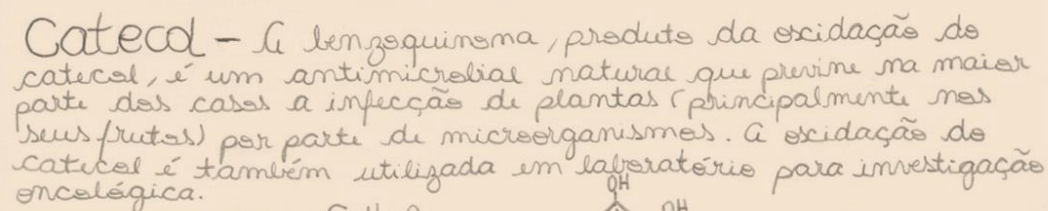 Catecol – A benzoquinona, produto da oxidação do
catecol, é um antimicrobial natural que previne na maior
parte dos casos a infecção de plantas (principalmente nos
seus frutos) por parte de microorganismos. A oxidação do
catecol é também utilizada em laboratório para investigação
oncológica.
OH
OH